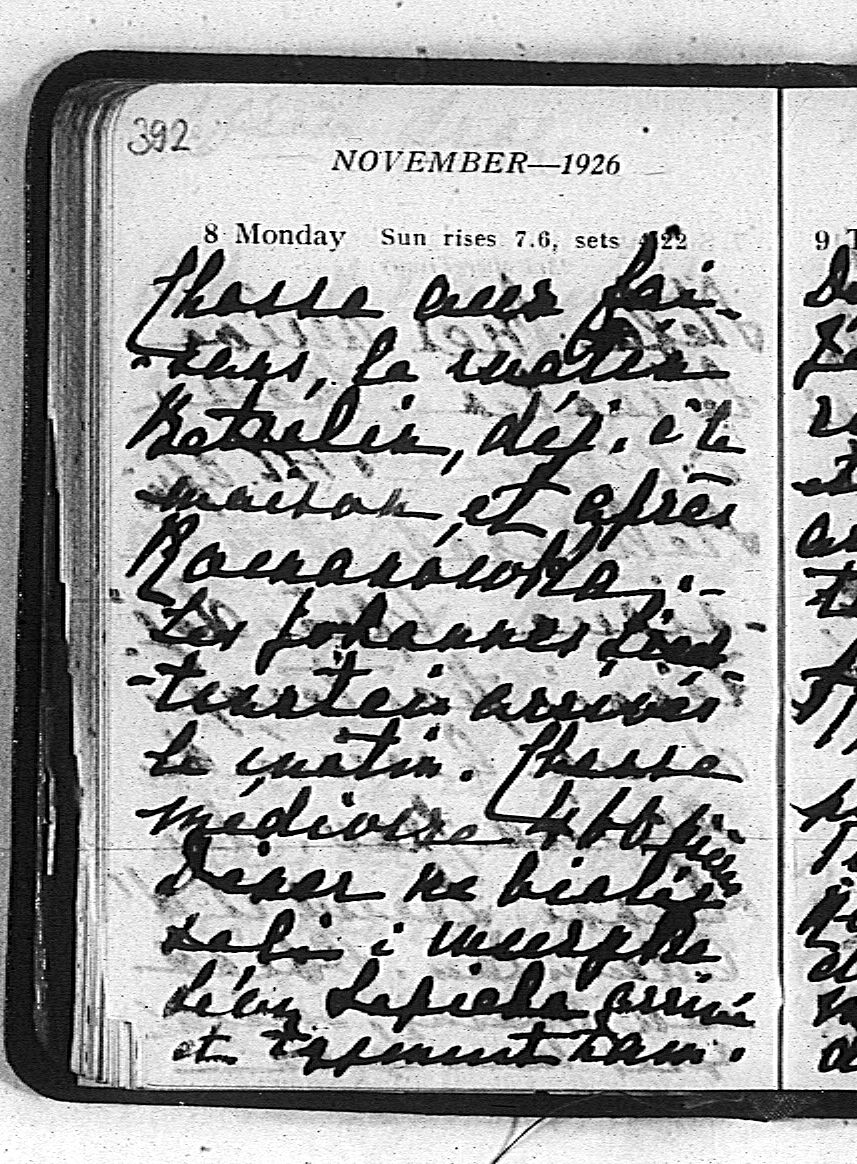 392
NOVEMBER—1926
8 Monday Sun rises 7.6, sets 4.22
Chasse aux fai-
-sans, le matin
déj. à la
maison, et après
Romanówka.-
Les Johannes Liech-
-tenstein arrivés
le matin. Chasse
médiocre 466 pièces
Diner na białej
sali i muzyka
Léon Sapieha arrivé
et
9